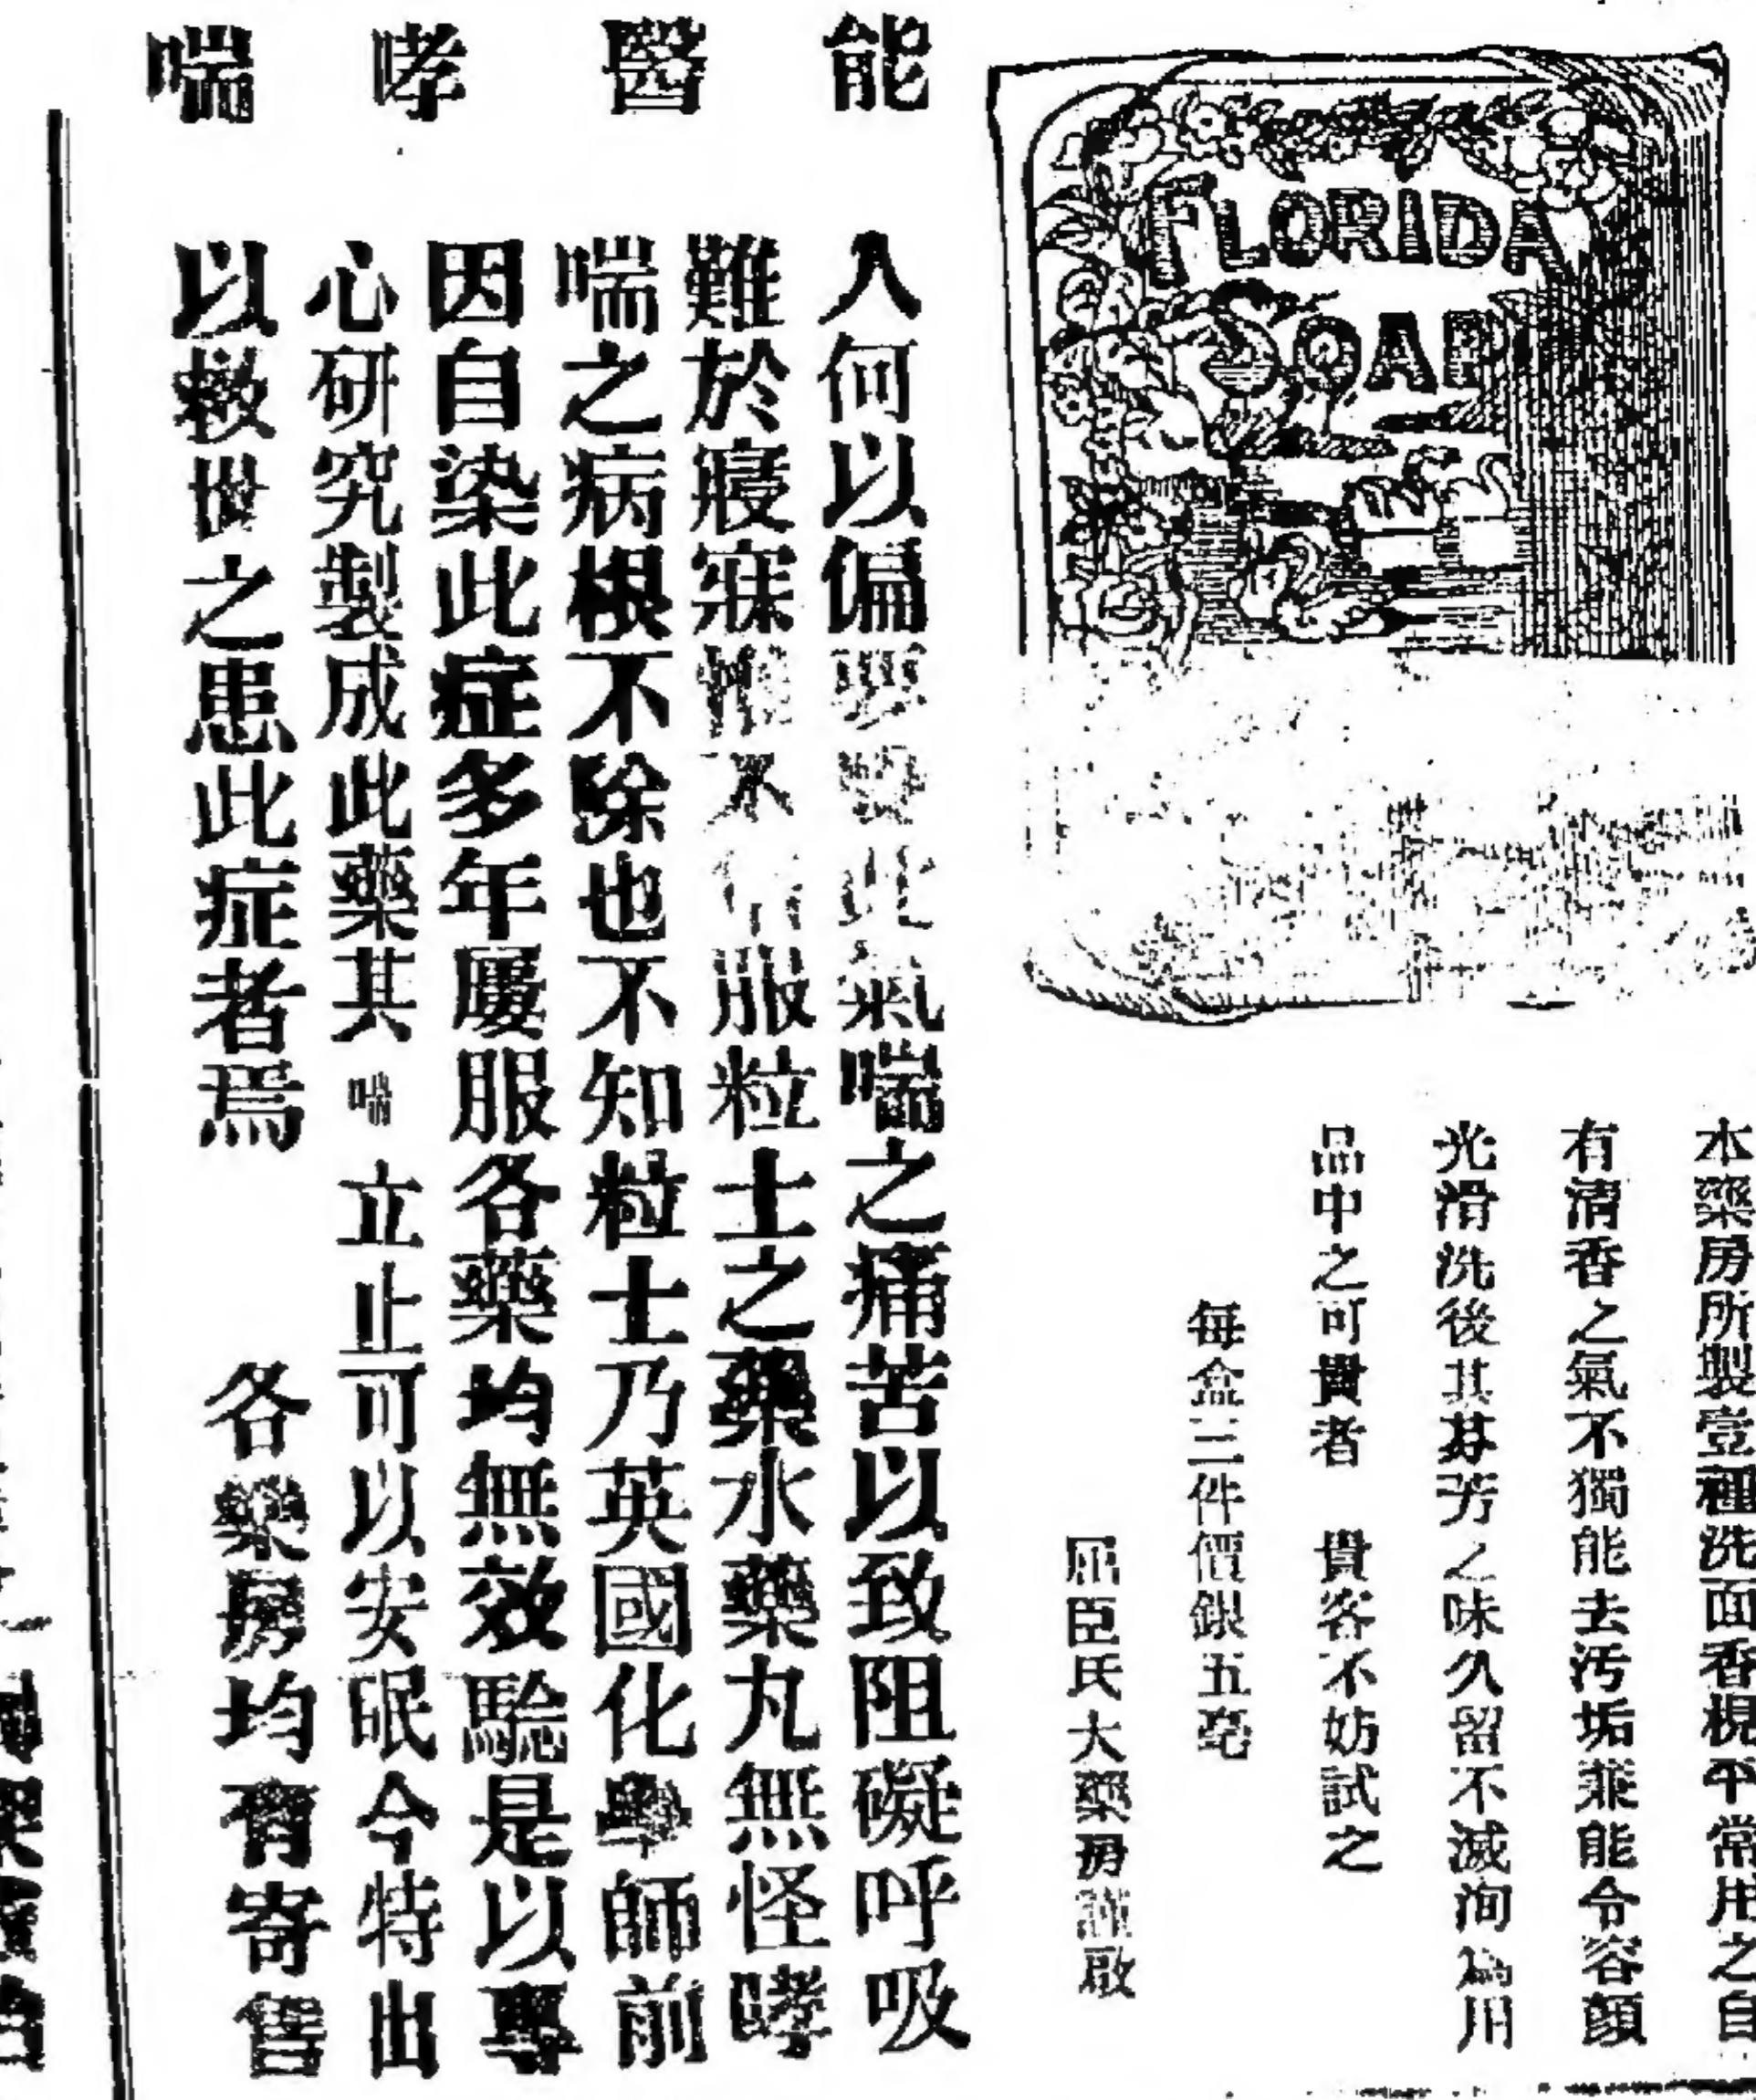 FLORIDA
SOAP
本藥房所製壹種洗面香梘平常用之自
有清香之氣不獨能去汚垢兼能令容顔
光滑洗後其芬芳之味久留不滅洵為用
品中之可貴者 貴客不妨試之
每盒三件價銀五毫
屈臣氏大藥房謹啟
能醫哮喘
人何以偏要受此氣喘之痛苦以致阻礙呼吸
難於寢寐惟不信服粒士之藥水藥丸無怪哮
喘之病根不除也不知粒士乃英國化學師前
因自染此症多年屢服各藥均無效驗是以專
心研究製成此藥其喘立止可以安眠今特出
以救世之患此症者焉 各藥房均有寄售